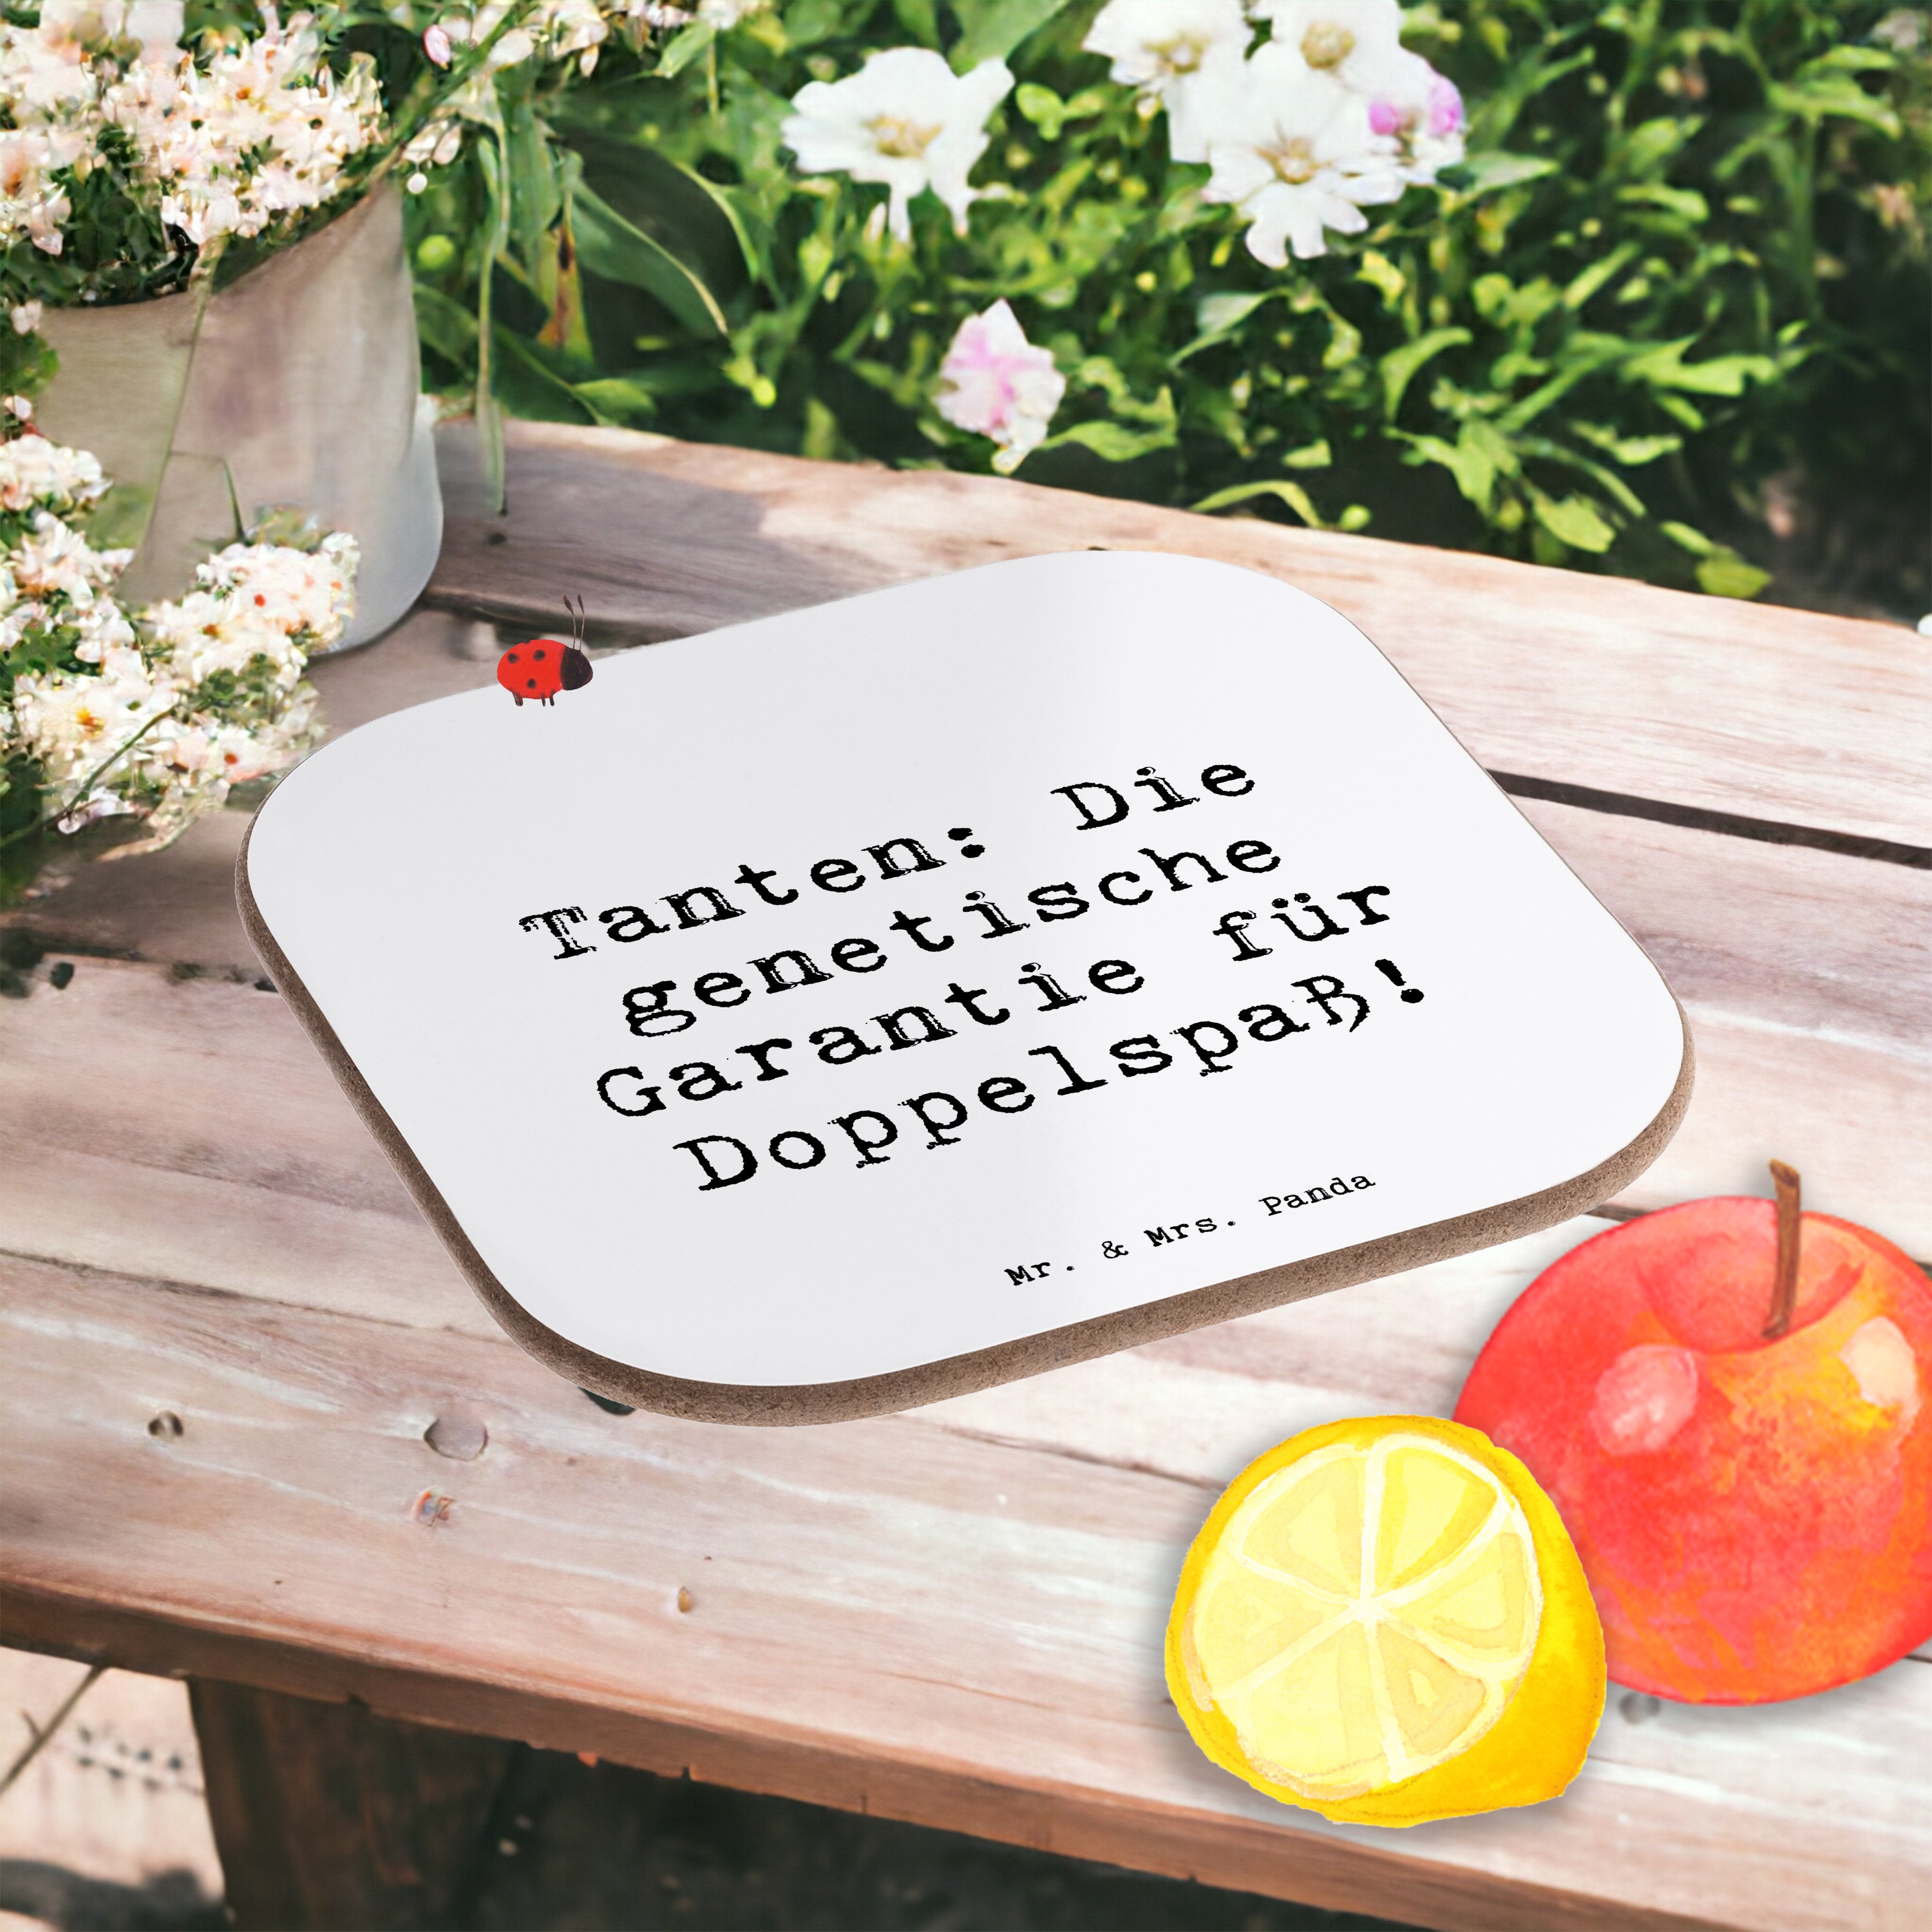 Tanten: Die
genetische
Garantie für
Doppelspaß!
Mr. & Mrs. Panda